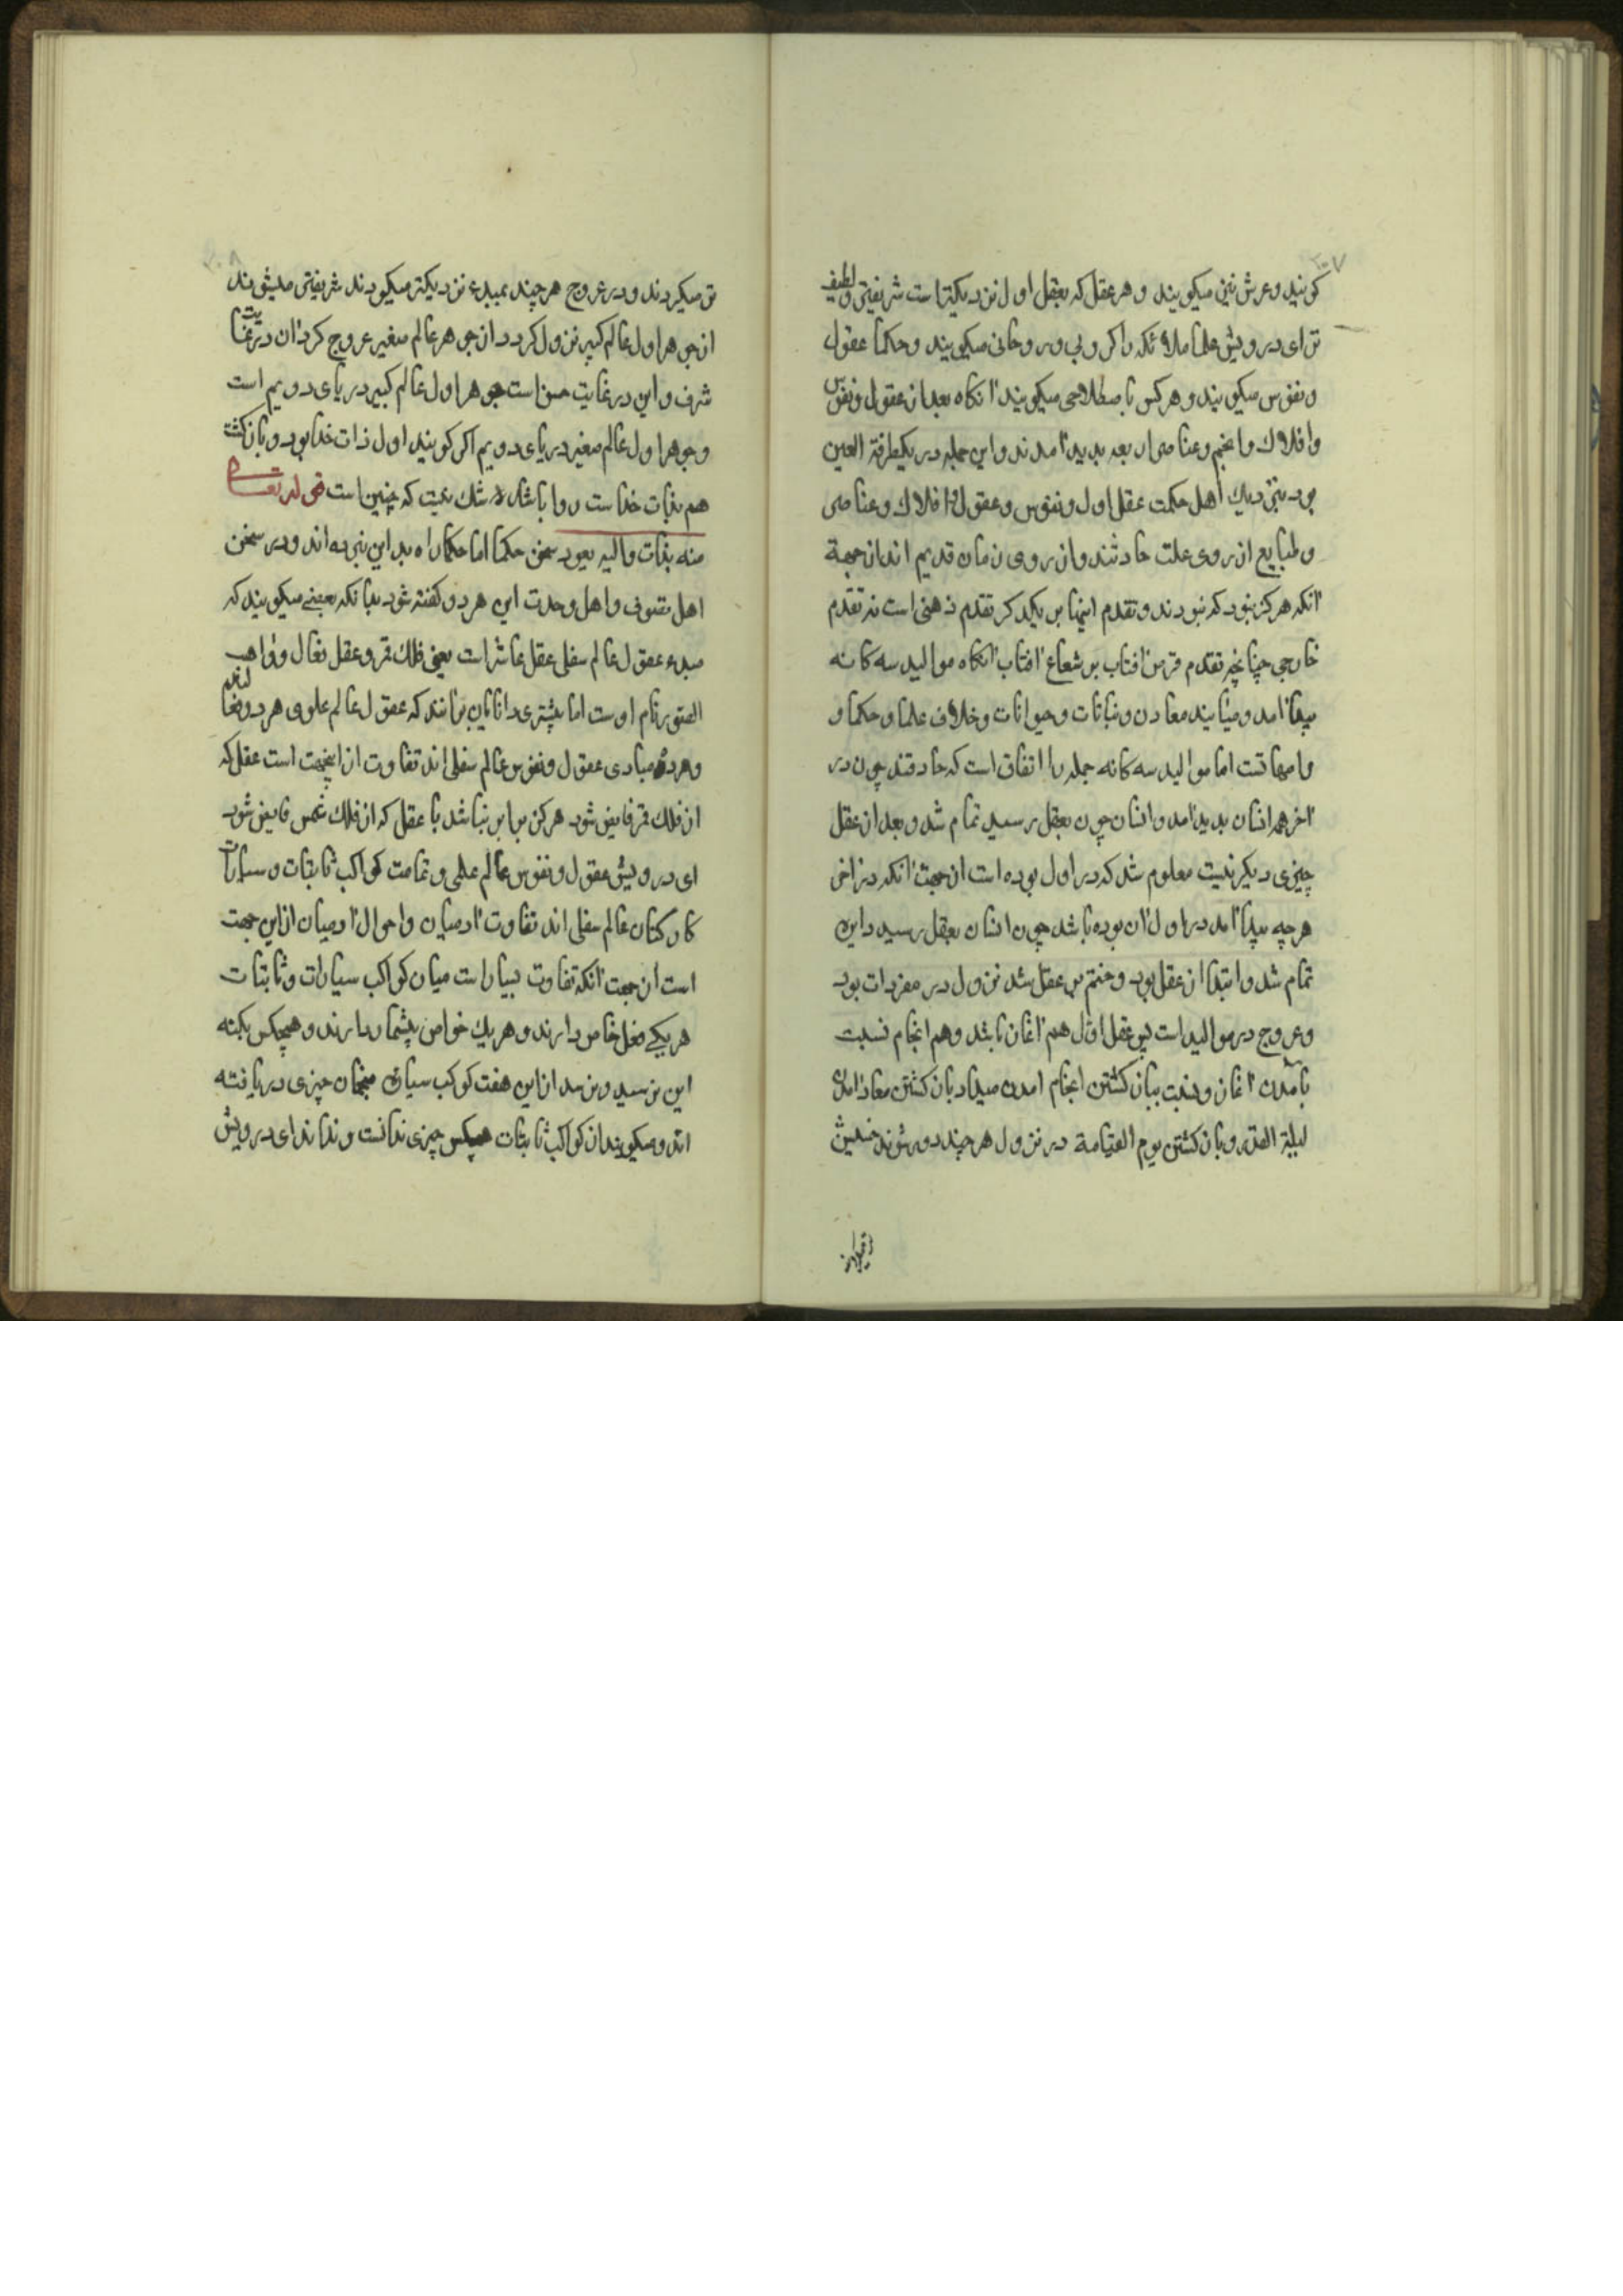 ۲۰۷
کویند وعرش نیز میکویند و هر عقل که بعقل اول نزدیکترست شریفتر ولطیف
تر ای درویش علما ملائکه را کروبی وروحانی میکویند وحکما عقول
ونفوس میکویند وهرکس باصطلاحی میکویند انکاه بعد از عقول ونفوس
وافلاك وانجم وعناصر اربعه بدید آمدند واین جمله در یکطرفة العین
بود بنزدیك اهل حکمت عقل اول ونفوس وعقول وافلاك وعناصر
وطبایع از روی علت حادثند واز روی زمان قدیم اند از جهة
آنکه هرکز نبود که نبودند وتقدم اینها بر یکدیکر تقدم ذهنی است نه تقدم
خارجی چنانچه تقدم قرص آفتاب بر شعاع آفتاب آنکاه موالید سه کانه
پیدا آمد ومیایند معادن ونباتات وحیوانات وخلاف علما وحکما و
وامهاتست اما موالید سه کانه جمله را اتفاق است که حادثند چون در
آخر همه انسان بدید آمد وانسان چون بعقل رسید تمام شد وبعد از عقل
چیزی دیکر نیست معلوم شد که در اول بوده است از جهت آنکه در آخر
هرچه پیدا آمد در اول آن بوده باشد چون انسان بعقل رسید دایره
تمام شد وابتدا از عقل بود وختم بر عقل شد نزول در مفردات بود
وعروج در موالید است پس عقل اول هم آغاز باشد وهم انجام نسبت
بآمدن آغاز ونسبت بباز کشتن انجام آمدن مبداد باز کشتن معاد آمدن
لیلة القدر وباز کشتن یوم القیامة در نزول هرچند دور شوند خسیس
۲۰۸
تر میکردند ودر عروج هرچند بمبدء نزدیکتر میکردند شریفتر میشوند
از جوهر اول عالم کبیر نزول کرد واز جوهر عالم صغیر عروج کرد آن در غایت
شرف واین در غایت خست جوهر اول عالم کبیر دریای دویم است
وجوهر اول عالم صغیر دریای دویم اکر کویند اول ذات خدا بود وبازکشت
هم بذات خداست روا باشد لا شك نیست که چنین است قوله تعالی
منه بذات والیه یعود سخن حکما اما حکما راه بداین نبرده اند ودر سخن
اهل تصوف واهل وحدت این هر دو کفته شود بدانکه بعضی میکویند که
مبدء عقول عالم سفلی عقل عاشر است یعنی فلك قمر وعقل فعال وواهب
الصور نام اوست اما بیشتری دانایان برانند که عقول عالم علوی هر ده فعالند
وهر ده مبادی عقول ونفوس عالم سفلی اند تفاوت از اینجهت است عقل که
از فلك قمر فایض شود هرکز برابر نباشد با عقل که از فلك شمس فایض شود
ای درویش عقول ونفوس عالم علوی وتمامت کواکب ثابتات وسیارات
کارکنان عالم سفلی اند تفاوت آدمیان واحوال آدمیان از این جهت
است از جهت آنکه تفاوت بسیار است میان کواکب سیارات وثابتات
هر یکی فعل خاص دارند وهر یك خواص بیشمار دارند وهیچکس بکنه
این نرسید ونرسد از این هفت کوکب سیاره منجمان چیزی دریافته
اند ومیکویند از کواکب ثابتات هیچکس چیزی ندانست ونداند ای درویش